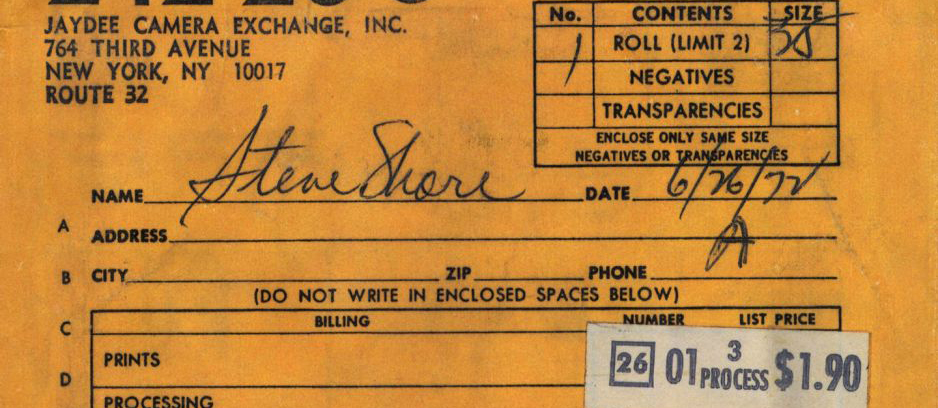 JAYDEE CAMERA EXCHANGE, INC.
764 THIRD AVENUE
NEW YORK, NY 10017
ROUTE 32
No. CONTENTS SIZE
1 ROLL (LIMIT 2) 35
NEGATIVES
TRANSPARENCIES
ENCLOSE ONLY SAME SIZE
NEGATIVES OR TRANSPARENCIES
NAME Steve Shore DATE 6/26/72
A ADDRESS A
B CITY ZIP PHONE
(DO NOT WRITE IN ENCLOSED SPACES BELOW)
C BILLING NUMBER LIST PRICE
PRINTS
26 01 3 PROCESS $1.90
D
PROCESSING